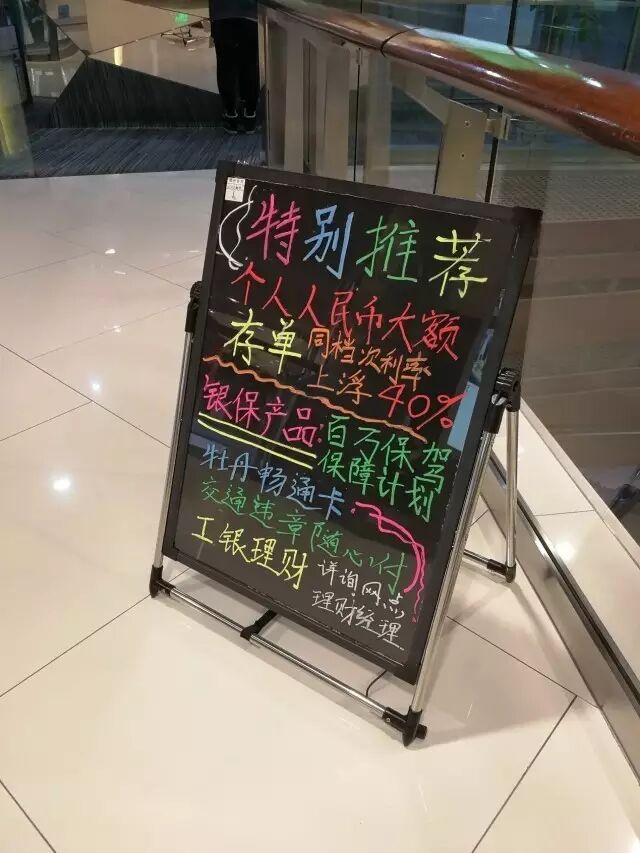 特别推荐
个人人民币大额
存单同档次利率
上浮40%
银保产品:百万保驾
保障计划
牡丹畅通卡
交通违章随心付
工银理财
详询网点
理财经理